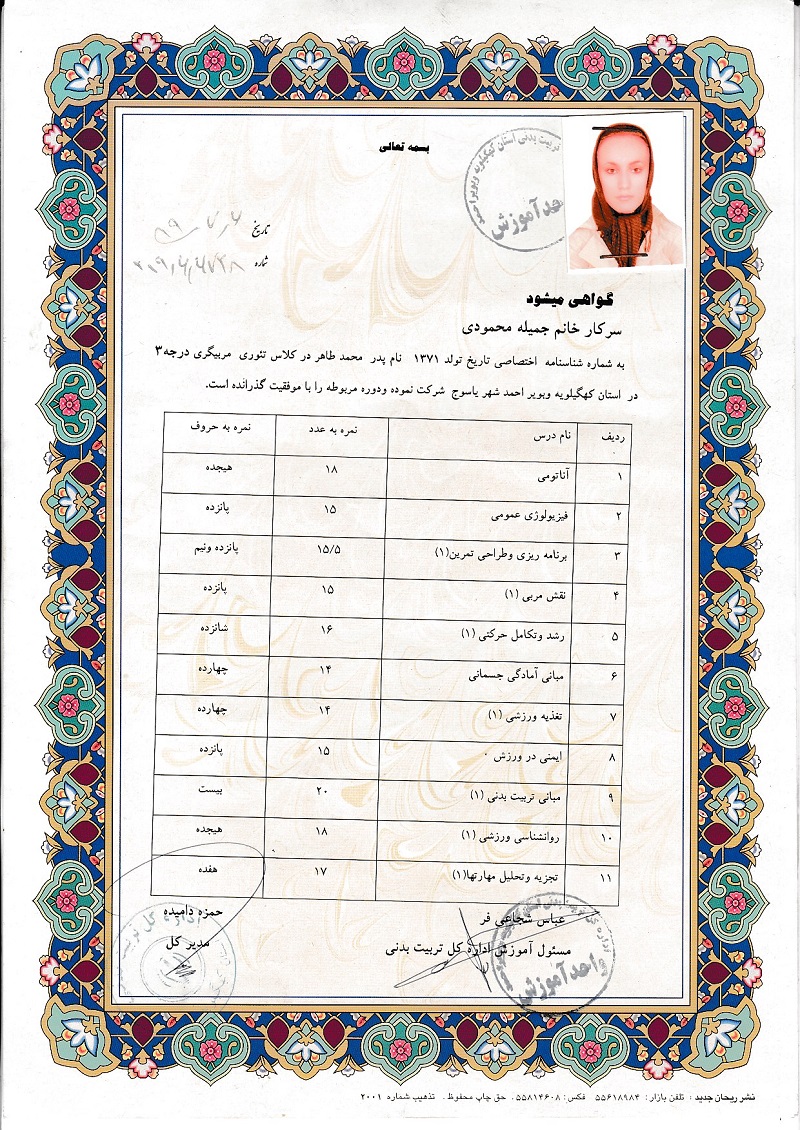 بسمه تعالی
تربیت بدنی استان کهگیلویه وبویراحمد
واحد آموزش
تاریخ
شماره
گواهی میشود
سرکار خانم جمیله محمودی
به شماره شناسنامه اختصاصی تاریخ تولد ۱۳۷۱ نام پدر محمد طاهر در کلاس تئوری مربیگری درجه۳
در استان کهگیلویه وبویر احمد شهر یاسوج شرکت نموده ودوره مربوطه را با موفقیت گذرانده است.
ردیف نام درس نمره به عدد نمره به حروف
۱ آناتومی ۱۸ هیجده
۲ فیزیولوژی عمومی ۱۵ پانزده
۳ برنامه ریزی وطراحی تمرین(۱) ۱۵/۵ پانزده ونیم
۴ نقش مربی (۱) ۱۵ پانزده
۵ رشد وتکامل حرکتی (۱) ۱۶ شانزده
۶ مبانی آمادگی جسمانی ۱۴ چهارده
۷ تغذیه ورزشی (۱) ۱۴ چهارده
۸ ایمنی در ورزش ۱۵ پانزده
۹ مبانی تربیت بدنی (۱) ۲۰ بیست
۱۰ روانشناسی ورزشی (۱) ۱۸ هیجده
۱۱ تجزیه وتحلیل مهارتها(۱) ۱۷ هفده
عباس شجاعی فر حمزه دامیده
مسئول آموزش اداره کل تربیت بدنی مدیر کل
واحد آموزش
نشر ریحان جدید : تلفن بازار: ۵۵۶۱۸۹۸۴ فکس: ۵۵۸۱۴۶۰۸ . حق چاپ محفوظ . تذهیب شماره ۲۰۰۱